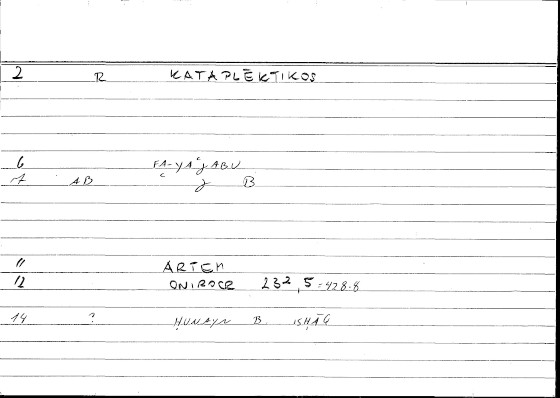 2 R KATAPLĒKTIKOS
6 FA-YAʿǧABU
7 AB ʿ ǧ B
11 ARTEM
12 ONIROCR 232,5 = 428.8
14 ? ḤUNAYN B. ISḤĀQ